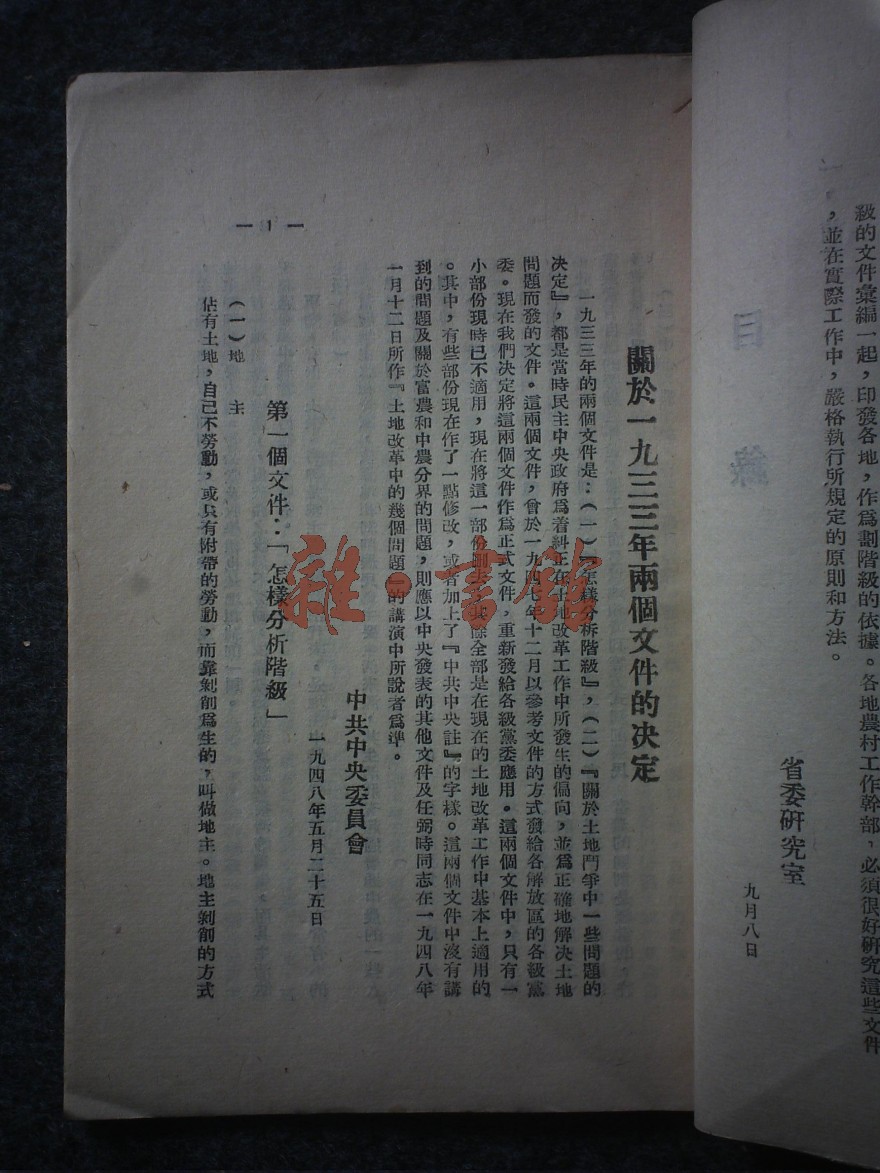 級的文件彙編一起,印發各地,作爲劃階級的依據。各地農村工作幹部,必須很好研究這些文件
,並在實際工作中,嚴格執行所規定的原則和方法。
省委研究室
九月八日
目錄
關於一九三三年兩個文件的决定
一九三三年的兩個文件是:(一)『怎樣分析階級』,(二)『關於土地鬥爭中一些問題的
决定』,都是當時民主中央政府爲着糾正在土地改革工作中所發生的偏向,並爲正確地解决土地
問題而發的文件。這兩個文件,曾於一九四七年十二月以參考文件的方式發給各解放區的各級黨
委。現在我們决定將這兩個文件作爲正式文件,重新發給各級黨委應用。這兩個文件中,只有一
小部份現時已不適用,現在將這一部份删去,其餘全部是在現在的土地改革工作中基本上適用的
。其中,有些部份現在作了一點修改,或者加上了『中共中央註』的字樣。這兩個文件中沒有講
到的問題及關於富農和中農分界的問題,則應以中央發表的其他文件及任弼時同志在一九四八年
一月十二日所作『土地改革中的幾個問題』的講演中所說者爲準。
中共中央委員會
一九四八年五月二十五日
第一個文件:「怎樣分析階級」
(一)地 主
佔有土地,自己不勞動,或只有附帶的勞動,而靠剝削爲生的,叫做地主。地主剝削的方式
— 1 —
雜·書館